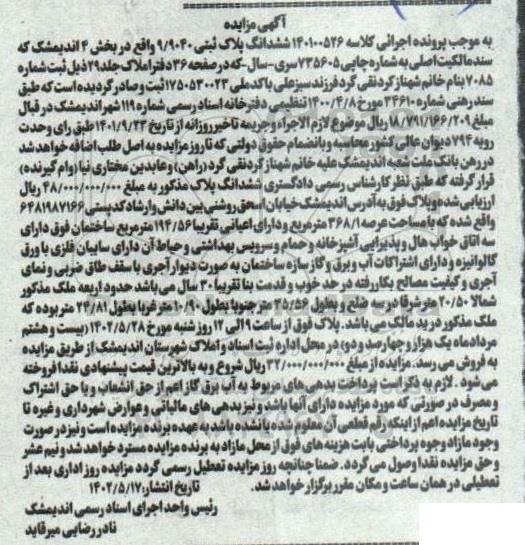 آگهی مزایده
به موجب پرونده اجرائی کلاسه ۱۴۰۱۰۰۵۲۶ ششدانگ پلاک ثبتی ۹/۹۰۴۰ واقع در بخش ۴ اندیمشک که
سند مالکیت اصلی به شماره چاپی ۷۳۵۶۰۵ سری - سال - که در صفحه ۳۶ دفتر املاک جلد ۲۹ ذیل ثبت شماره
۷۰۸۵ بنام خانم شهناز کردنقی گرد فرزند سبزعلی با کدملی ۱۷۵۰۵۳۰۰۲۳ ثبت و صادر گردیده است که طبق
سند رهنی شماره ۳۴۶۱۰ مورخ ۱۴۰۰/۴/۸ تنظیمی دفترخانه اسناد رسمی شماره ۱۱۹ شهر اندیمشک در قبال
مبلغ ۱۸/۷۹۱/۱۶۶/۲۰۹ ریال موضوع لازم الاجراء و جریمه تاخیر روزانه از تاریخ ۱۴۰۱/۹/۲۳ طبق رای وحدت
رویه ۷۹۴ دیوان عالی کشور محاسبه و بانضمام حقوق دولتی که تا روز مزایده به اصل طلب اضافه خواهد شد
در رهن بانک ملت شعبه اندیمشک علیه خانم شهناز کردنقی گرد (راهن) و عابدین مختاری نیا (وام گیرنده)
قرار گرفته که طبق نظر کارشناس رسمی دادگستری ششدانگ پلاک مذکور به مبلغ ۴۸/۰۰۰/۰۰۰/۰۰۰ ریال
ارزیابی شده و پلاک فوق به آدرس اندیمشک خیابان اسحق روشنی بین دانش و ارشاد کدپستی ۶۴۸۱۹۸۷۱۶۶
واقع شده که با مساحت عرصه ۳۶۸/۱ مترمربع و دارای اعیانی تقریبا ۱۹۴/۵۶ مترمربع ساختمان فوق دارای
سه اتاق خواب هال و پذیرایی آشپزخانه و حمام و سرویس بهداشتی و حیاط آن دارای سایبان فلزی با ورق
گالوانیزه و دارای اشتراکات آب و برق و گاز سازه ساختمان به صورت دیوار آجری با سقف طاق ضربی و نمای
آجری و کیفیت مصالح بکار رفته در حد خوب و قدمت بنا تقریبا ۳۰ سال می باشد حدود اربعه ملک مذکور
شمالا ۲۰/۵۰ متر شرقا در سه ضلع و بطول ۳۵/۵۶ متر جنوبا بطول ۱۰/۹۰ متر غربا بطول ۲۴/۸۱ متر بوده که
ملک مذکور در ید مالک می باشد. پلاک فوق از ساعت ۹ الی ۱۲ روز شنبه مورخ ۱۴۰۲/۵/۲۸ (بیست و هشتم
مرداد ماه یک هزار و چهارصد و دو) در محل اداره ثبت اسناد و املاک شهرستان اندیمشک از طریق مزایده
به فروش می رسد. مزایده از مبلغ ۳۲/۰۰۰/۰۰۰/۰۰۰ ریال شروع و به بالاترین قیمت پیشنهادی نقدا فروخته
می شود. لازم به ذکر است پرداخت بدهی های مربوط به آب برق گاز اعم از حق انشعاب و یا حق اشتراک
و مصرف در صورتی که مورد مزایده دارای آنها باشد و نیز بدهی های مالیاتی و عوارض شهرداری و غیره تا
تاریخ مزایده اعم از اینکه رقم قطعی آن معلوم شده یا نشده باشد به عهده برنده مزایده است و نیز در صورت
وجود مازاد وجوه پرداختی بابت هزینه های فوق از محل مازاد به برنده مزایده مسترد خواهد شد و نیم عشر
و حق مزایده نقدا وصول می گردد. ضمنا چنانچه روز مزایده تعطیل رسمی گردد مزایده روز اداری بعد از
تعطیلی در همان ساعت و مکان مقرر برگزار خواهد شد. تاریخ انتشار: ۱۴۰۲/۵/۱۷
رئیس واحد اجرای اسناد رسمی اندیمشک
نادر رضایی میرقاید